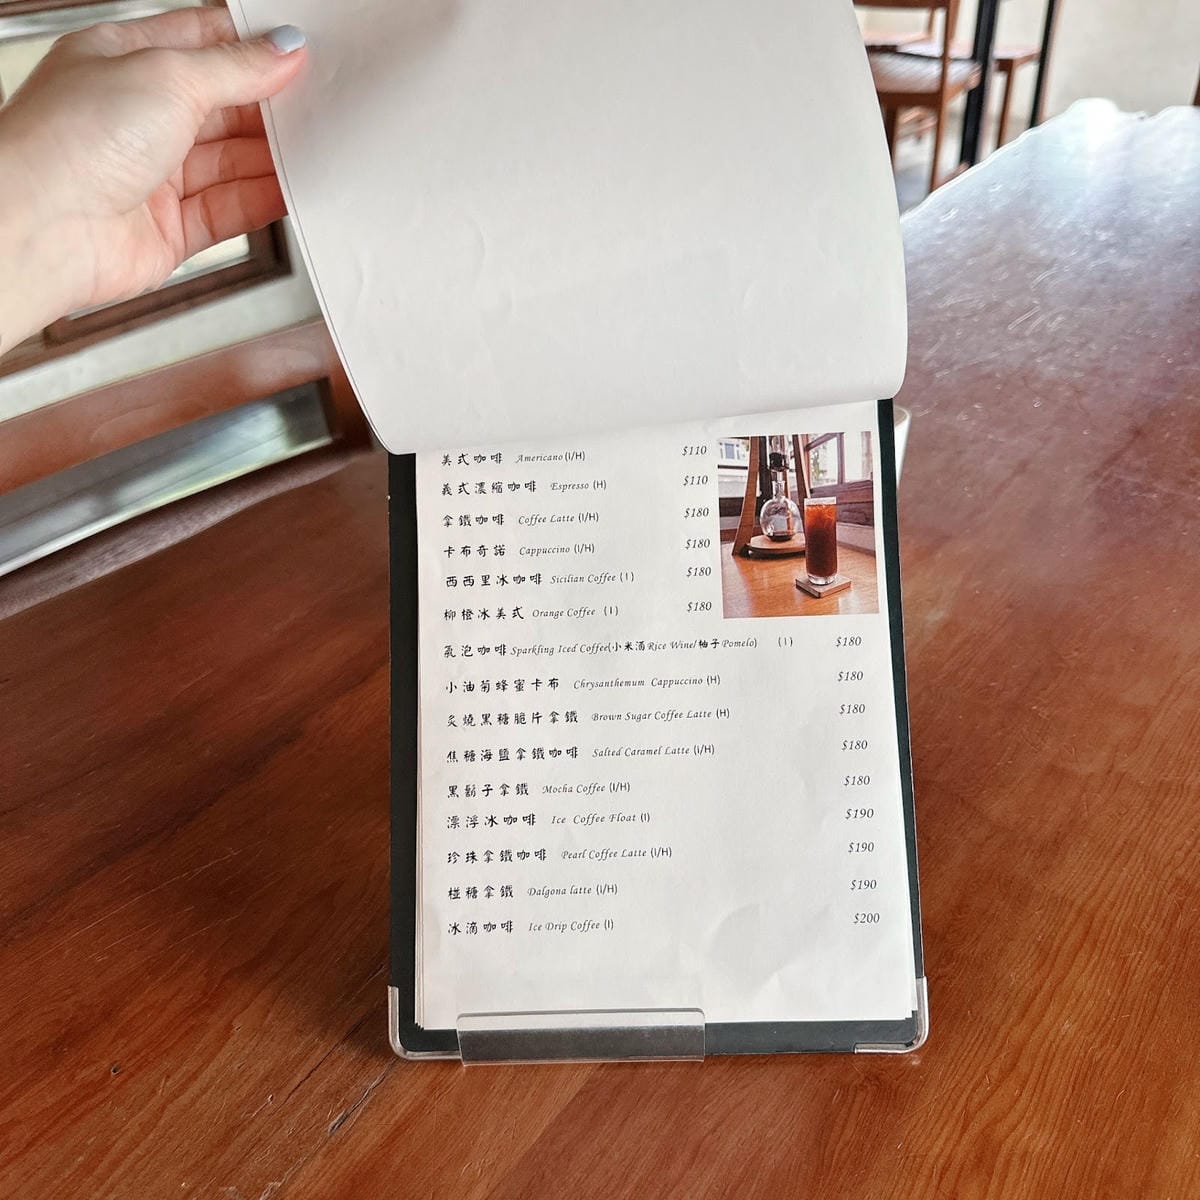 美式咖啡 Americano (I/H) $110
義式濃縮咖啡 Espresso (H) $110
拿鐵咖啡 Coffee Latte (I/H) $180
卡布奇諾 Cappuccino (I/H) $180
西西里冰咖啡 Sicilian Coffee (I) $180
柳橙冰美式 Orange Coffee (I) $180
氣泡咖啡 Sparkling Iced Coffee(小米酒Rice Wine/柚子Pomelo) (I) $180
小油菊蜂蜜卡布 Chrysanthemum Cappuccino (H) $180
炙燒黑糖脆片拿鐵 Brown Sugar Coffee Latte (H) $180
焦糖海鹽拿鐵咖啡 Salted Caramel Latte (I/H) $180
黑鬍子拿鐵 Mocha Coffee (I/H) $180
漂浮冰咖啡 Ice Coffee Float (I) $190
珍珠拿鐵咖啡 Pearl Coffee Latte (I/H) $190
椪糖拿鐵 Dalgona latte (I/H) $190
冰滴咖啡 Ice Drip Coffee (I) $200